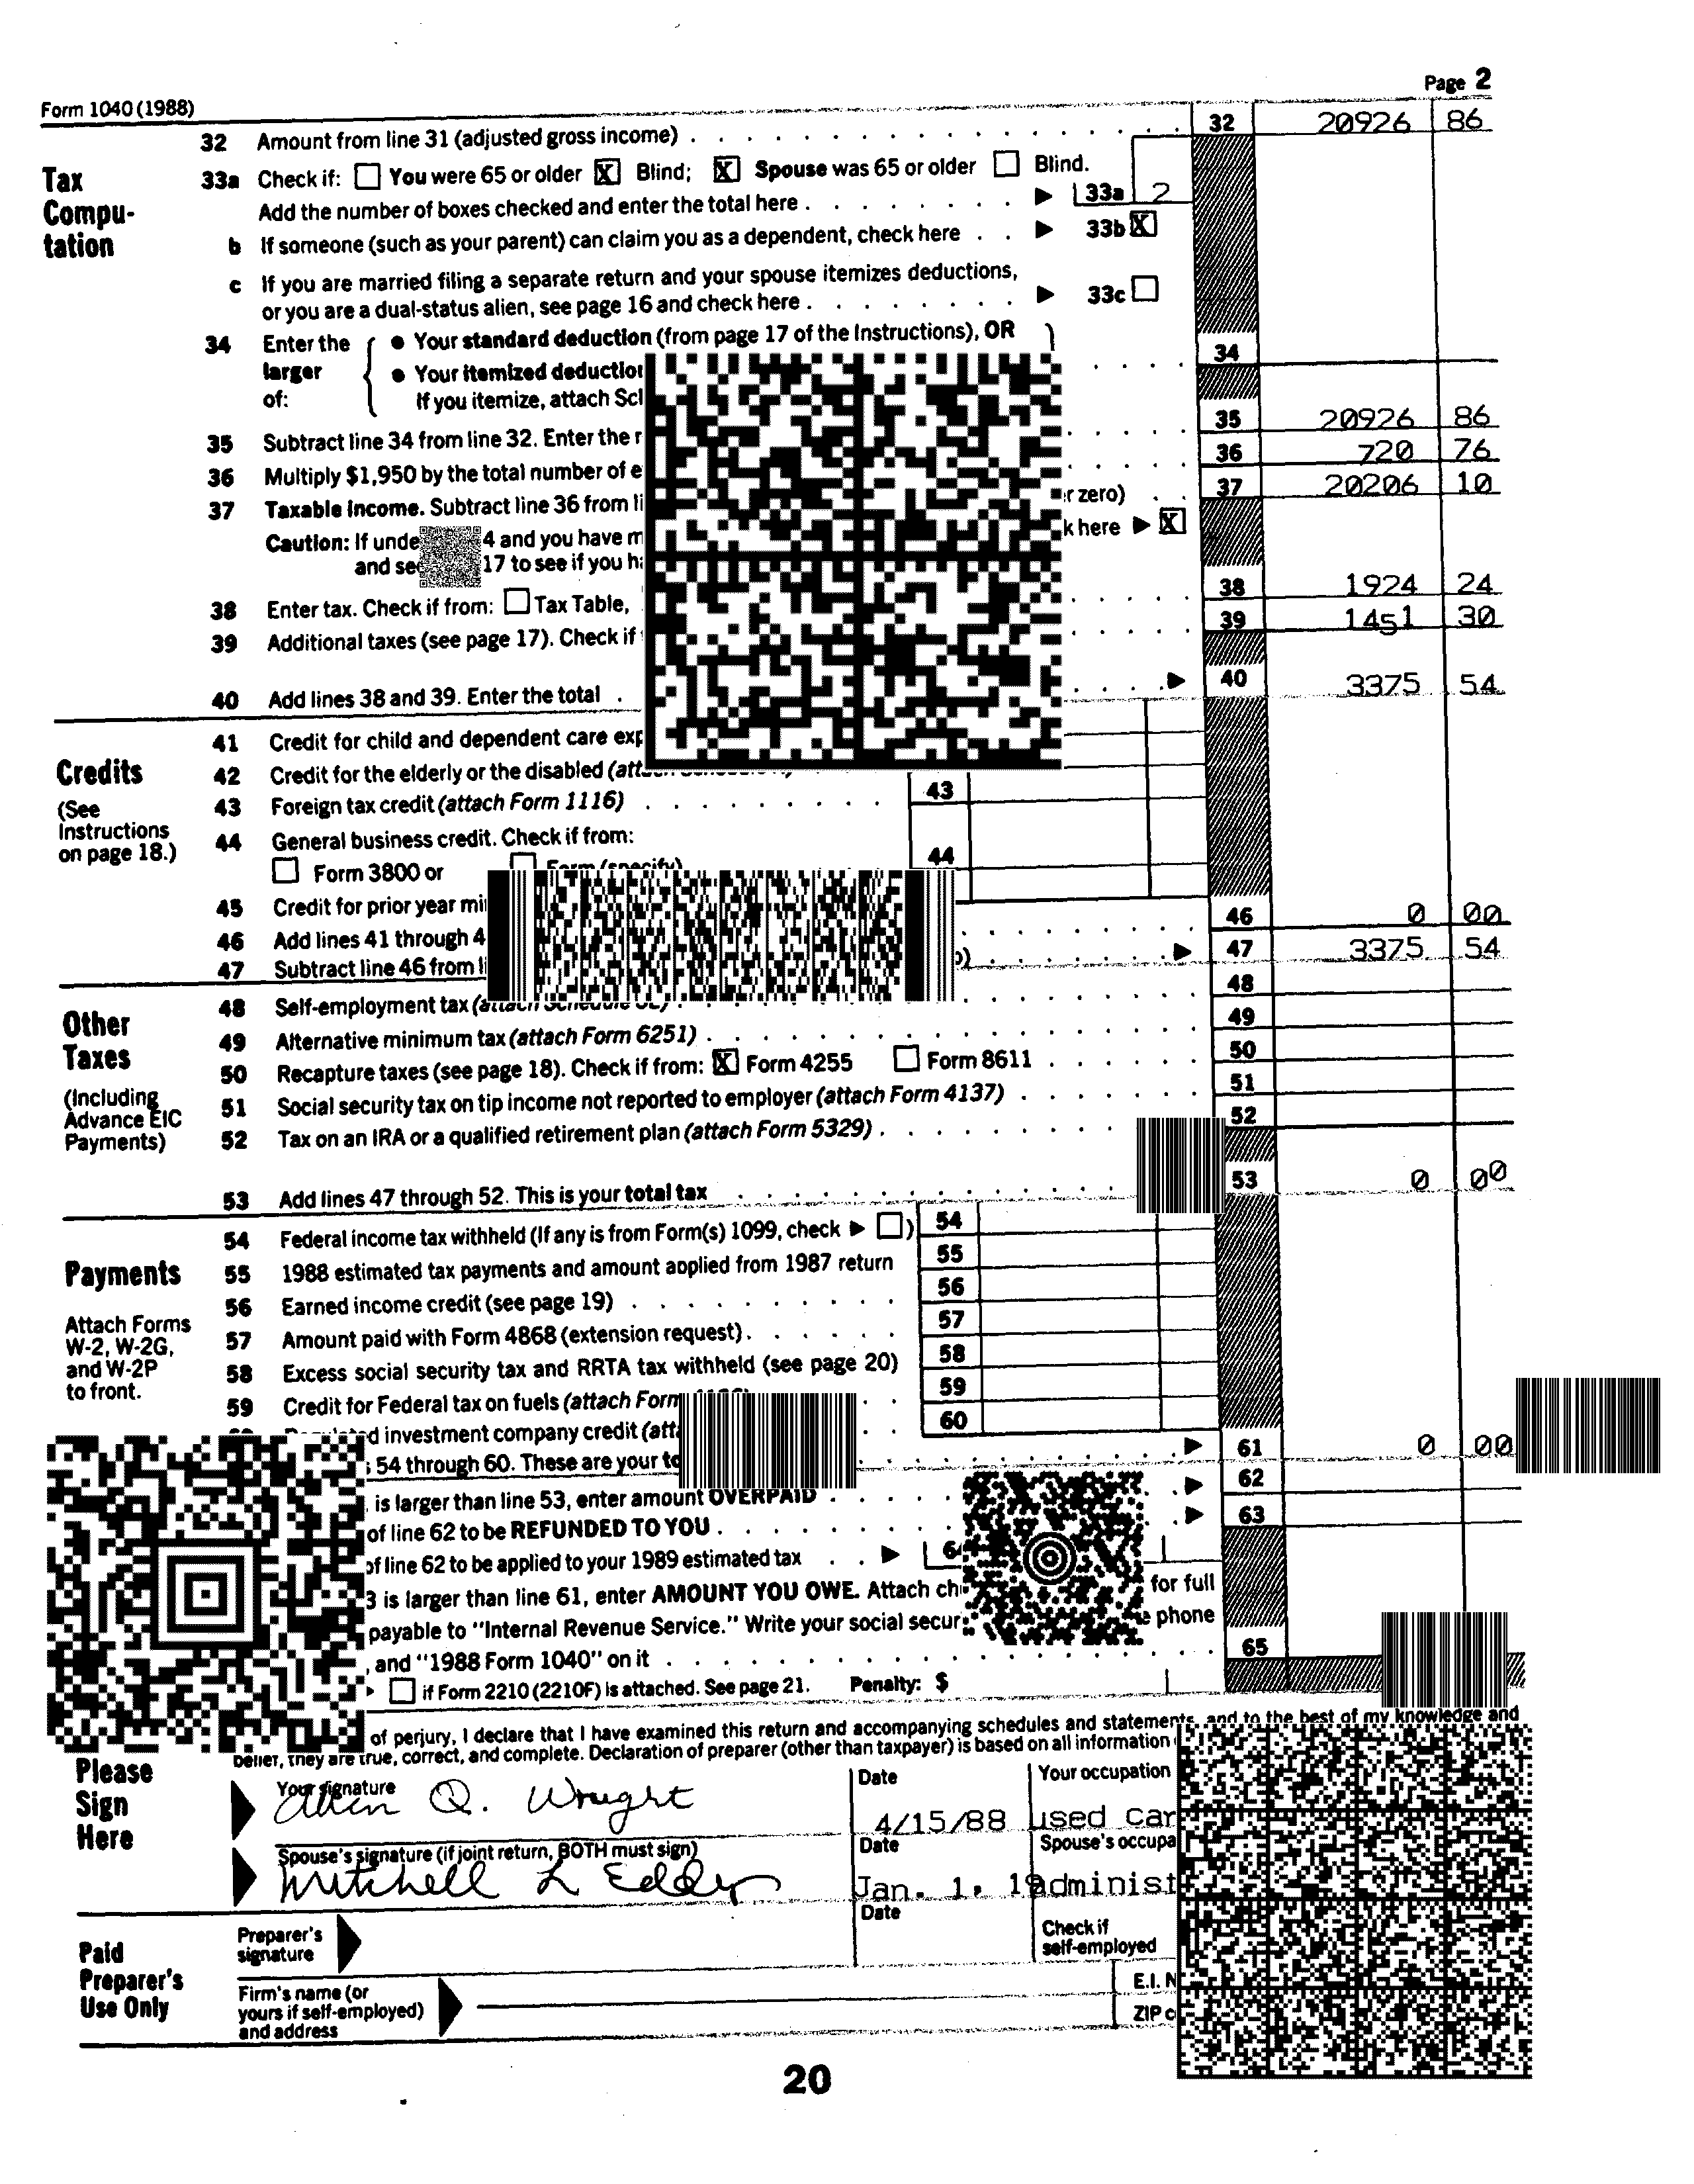 Page 2
Form 1040 (1988)
32 Amount from line 31 (adjusted gross income) 32 20926 86
Tax Compu-tation
33a Check if: You were 65 or older X Blind; X Spouse was 65 or older Blind.
Add the number of boxes checked and enter the total here 33a 2
b If someone (such as your parent) can claim you as a dependent, check here 33b X
c If you are married filing a separate return and your spouse itemizes deductions,
or you are a dual-status alien, see page 16 and check here 33c
34 Enter the larger of: • Your standard deduction (from page 17 of the Instructions), OR 34
• Your itemized
If you itemize, attach
35 Subtract line 34 from line 32. Enter the 35 20926 86
36 Multiply $1,950 by the total number of 36 720 76
37 Taxable income. Subtract line 36 from zero) 37 20206 10
Caution: If and you have here X
and 17 to see if you
38 Enter tax. Check if from: Tax Table, 38 1924 24
39 Additional taxes (see page 17). Check if 39 1451 30
40 Add lines 38 and 39. Enter the total 40 3375 54
Credits
(See Instructions on page 18.)
41 Credit for child and dependent care
42 Credit for the elderly or the disabled
43 Foreign tax credit (attach Form 1116) 43
44 General business credit. Check if from:
Form 3800 or Form (specify) 44
45 Credit for prior year
46 Add lines 41 through 46 0 00
47 Subtract line 46 from 47 3375 54
Other Taxes
(Including Advance EIC Payments)
48 Self-employment tax 48
49 Alternative minimum tax (attach Form 6251) 49
50 Recapture taxes (see page 18). Check if from: X Form 4255 Form 8611 50
51 Social security tax on tip income not reported to employer (attach Form 4137) 51
52 Tax on an IRA or a qualified retirement plan (attach Form 5329) 52
53 Add lines 47 through 52. This is your total tax 53 0 00
Payments
Attach Forms W-2, W-2G, and W-2P to front.
54 Federal income tax withheld (If any is from Form(s) 1099, check ) 54
55 1988 estimated tax payments and amount applied from 1987 return 55
56 Earned income credit (see page 19) 56
57 Amount paid with Form 4868 (extension request) 57
58 Excess social security tax and RRTA tax withheld (see page 20) 58
59 Credit for Federal tax on fuels (attach Form 59
investment company credit 60
54 through 60. These are your 61 0 00
is larger than line 53, enter amount OVERPAID 62
of line 62 to be REFUNDED TO YOU 63
of line 62 to be applied to your 1989 estimated tax
is larger than line 61, enter AMOUNT YOU OWE. Attach for full
payable to "Internal Revenue Service." Write your social phone
and "1988 Form 1040" on it 65
if Form 2210 (2210F) is attached. See page 21. Penalty: $
of perjury, I declare that I have examined this return and accompanying schedules and statements, and to the best of my knowledge and
belief, they are true, correct, and complete. Declaration of preparer (other than taxpayer) is based on all information
Please Sign Here
Your signature Date Your occupation
Allen Q. Wright 4/15/88 used car
Spouse's signature (if joint return, BOTH must sign) Date Spouse's
Mitchell L Eddy Jan. 1, administ
Paid Preparer's Use Only
Preparer's signature Date Check if self-employed
Firm's name (or yours if self-employed) and address E.I.
ZIP
20